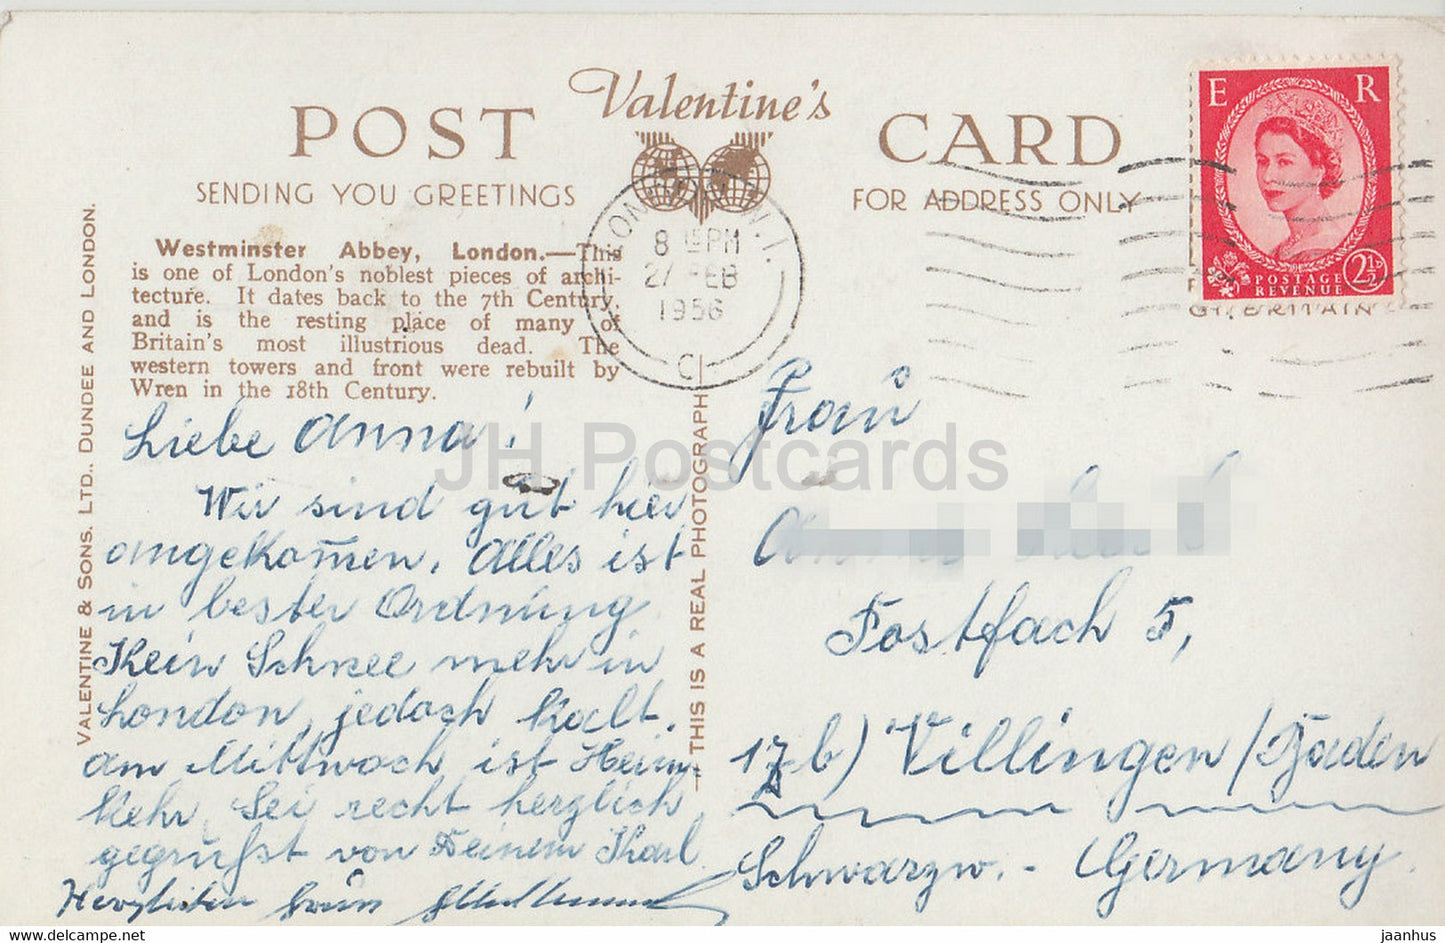 Valentine's
POST CARD
SENDING YOU GREETINGS
FOR ADDRESS ONLY
E R
POSTAGE
REVENUE
2½D
GT. BRITAIN
LONDON W.1.
8 15 PM
27 FEB
1956
C
Westminster Abbey, London.—This
is one of London's noblest pieces of archi-
tecture. It dates back to the 7th Century,
and is the resting place of many of
Britain's most illustrious dead. The
western towers and front were rebuilt by
Wren in the 18th Century.
VALENTINE & SONS. LTD., DUNDEE AND LONDON.
THIS IS A REAL PHOTOGRAPH
Liebe Anna!
Wir sind gut hier
angekom̅en. Alles ist
in bester Ordnung
Kein Schnee mehr in
London, jedoch kalt.
Am Mittwoch ist Heim-
kehr. Sei recht herzlich
gegrüßt von Deinem Karl
Herzlichen Gruss
Frau
Postfach 5,
17b) Villingen/Baden
Schwarzw. - Germany.
JH Postcards
www.hippostcard.com
jaanhus